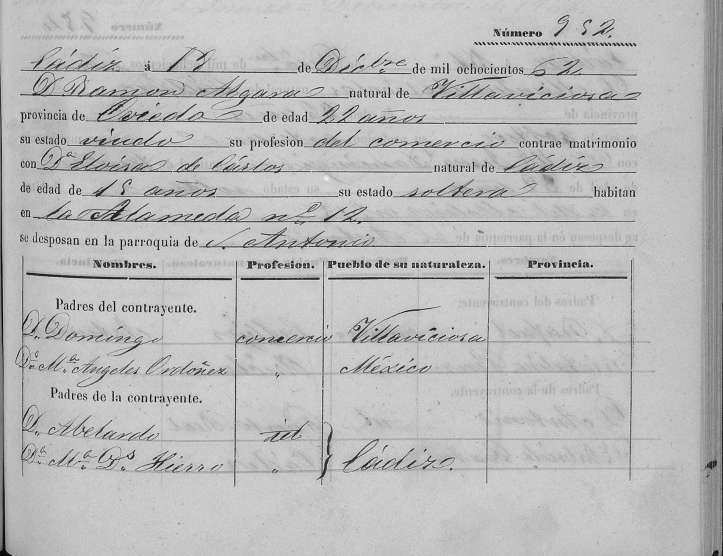 Número 952.
Cádiz á 19 de Dicbre de mil ochocientos 62.
Dn. Ramon Algara natural de Villaviciosa
provincia de Oviedo de edad 22 años
su estado viudo su profesion del comercio contrae matrimonio
con Da. Eloisa de Cárlos natural de Cádiz
de edad de 18 años su estado soltera habitan
en la Alameda no. 12.
se desposan en la parroquia de S. Antonio
Nombres. Profesion. Pueblo de su naturaleza. Provincia.
Padres del contrayente.
Dn. Domingo comercio Villaviciosa
Da. Ma. Angeles Ordoñez " México
Padres de la contrayente.
Dn. Abelardo id
Da. Ma. Ds. Hierro " Cádiz.